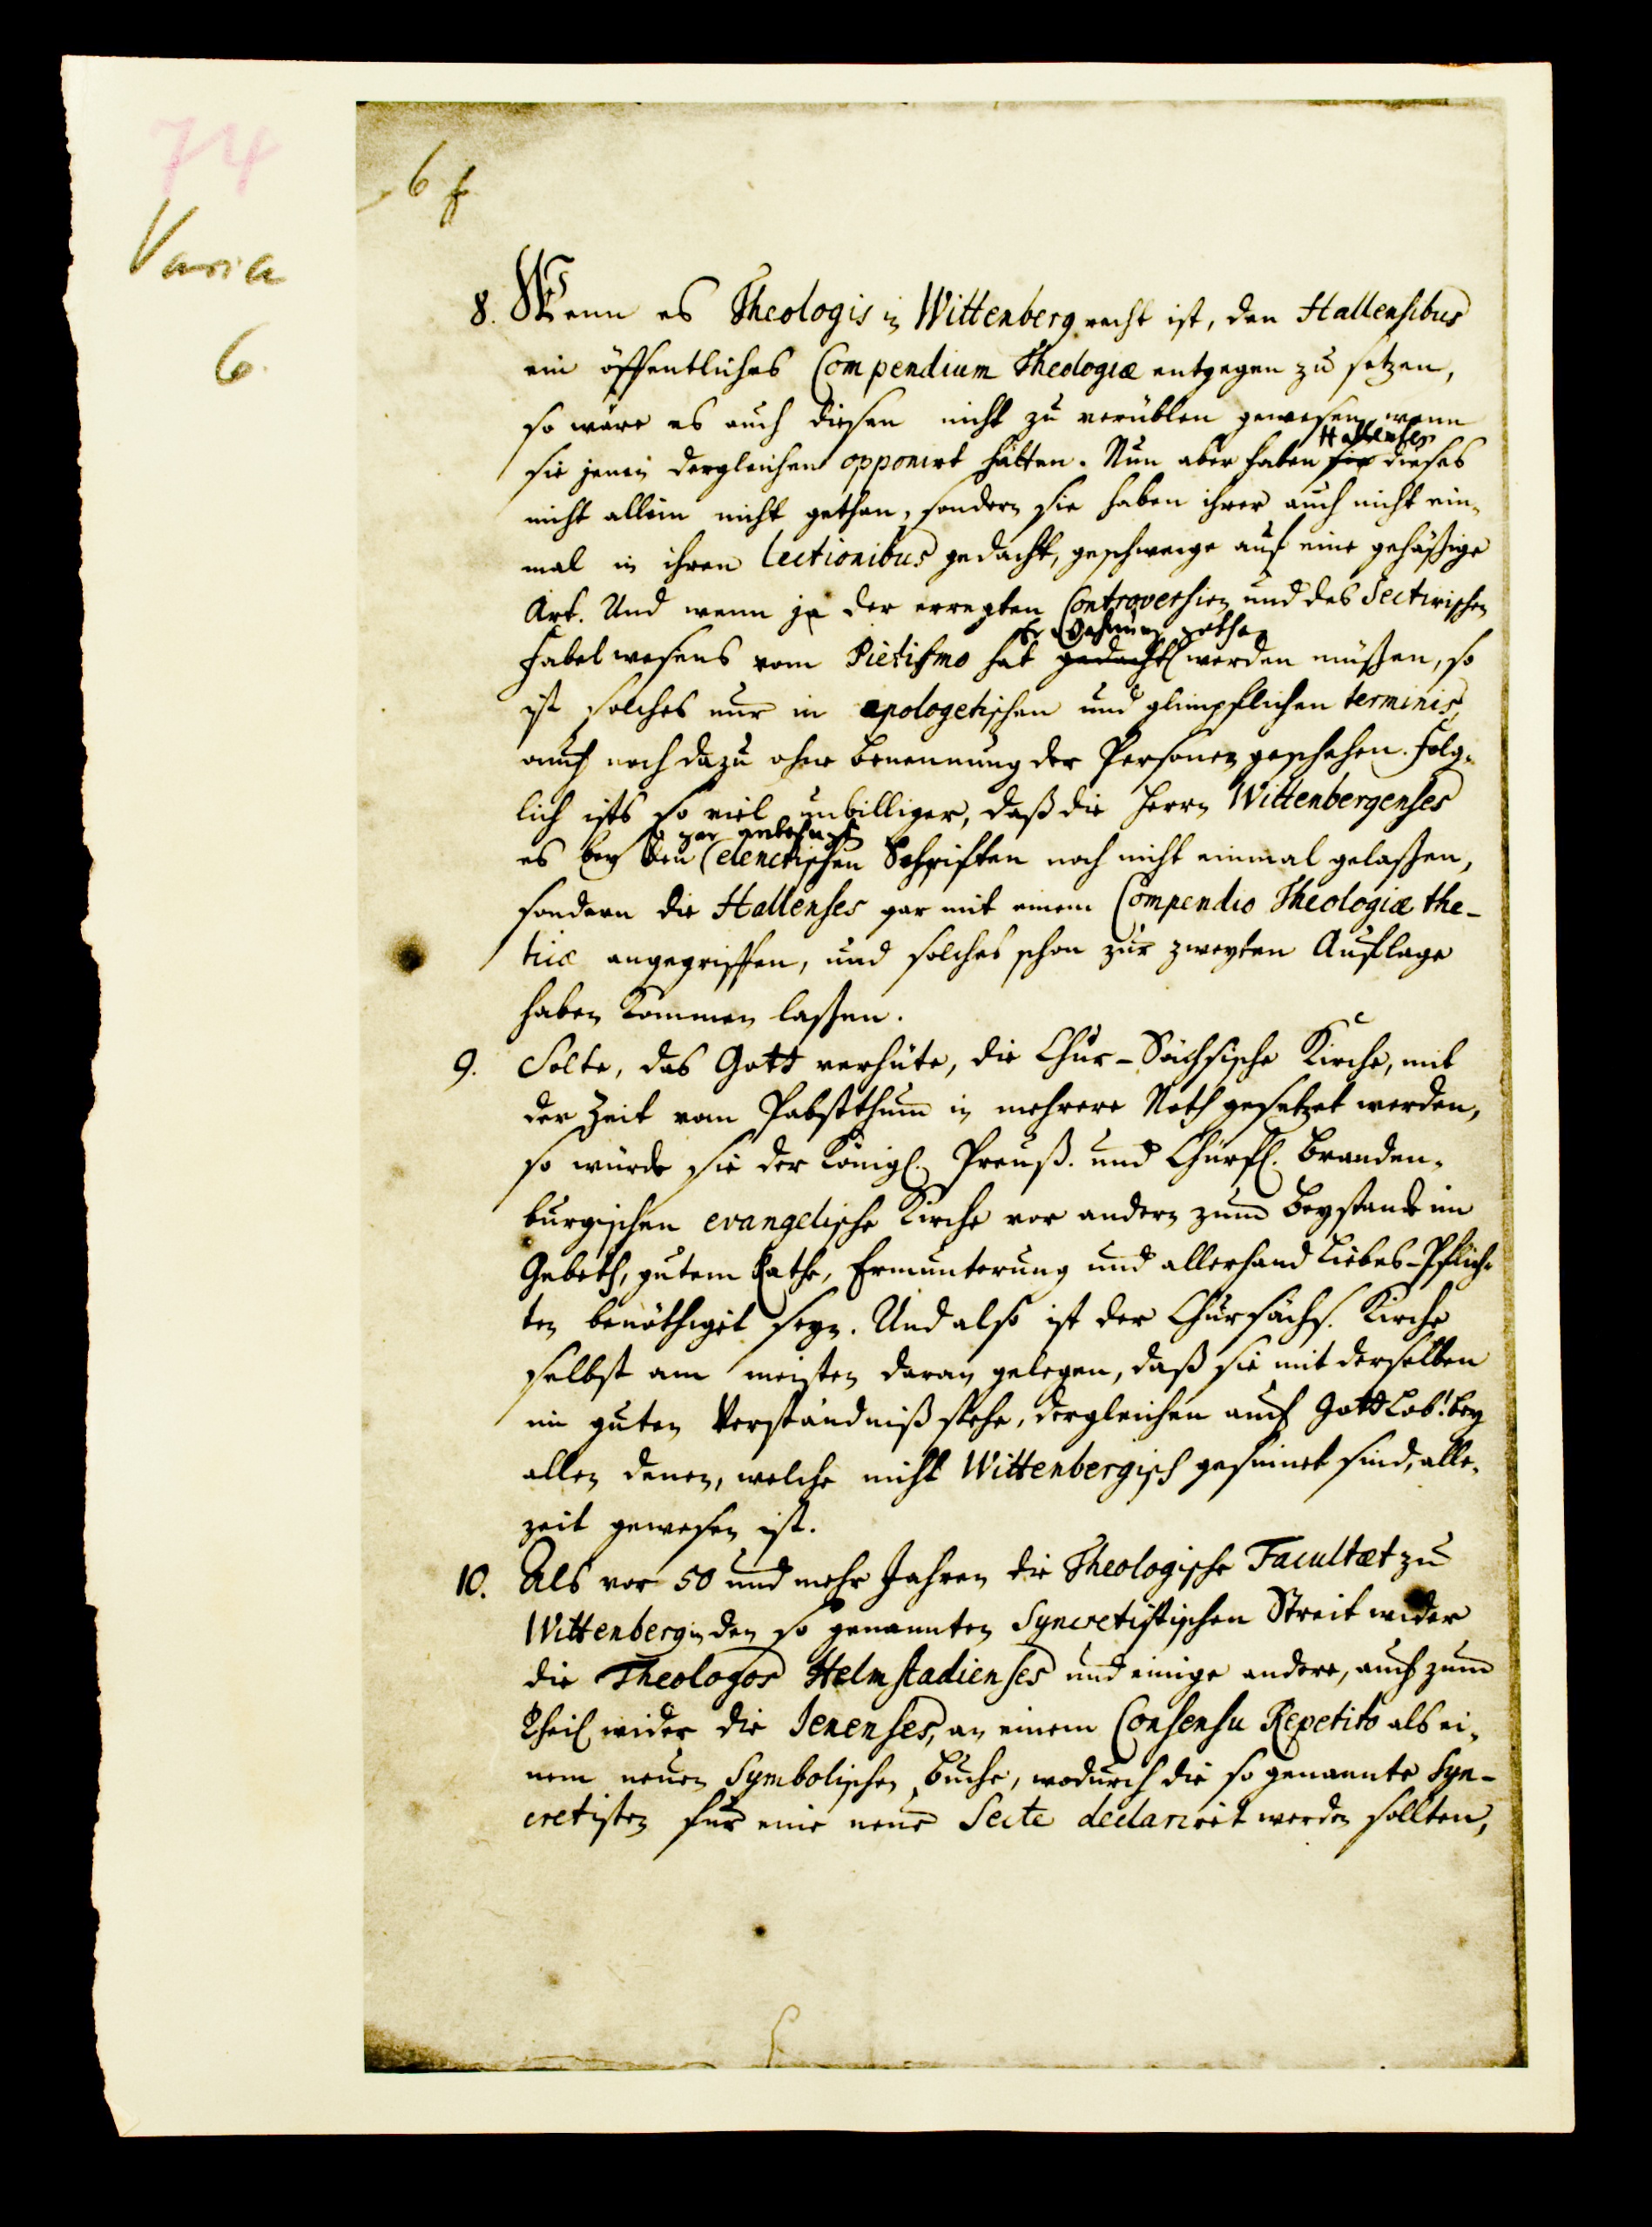 74
Varia
6.
6
8. Wenn es Theologis in Wittenberg recht ist, den Hallensibus
ein öffentliches Compendium Theologiæ entgegen zu setzen,
so wäre es auch diesen nicht zu verüblen gewesen, wenn
sie jenen dergleichen opponirt hätten. Nun aber haben sie Hallenses dieses
nicht allein nicht gethan, sondern sie haben ihrer auch nicht ein-
mal in ihren Lectionibus gedacht, geschweige auf eine gehäßige
Art. Und wenn ja der erregten Controversien und des Sectirischen
Fabelwesens vom Pietismo hat gedacht Erwehnung gethan werden müßen, so
ist solches nur in apologetischen und glimpflichen terminis,
auch noch dazu ohne Benennung der Personen geschehen. Folg-
lich ists so viel unbilliger, daß die Herrn Wittenbergenses
es bey den elenctischen Schriften noch nicht einmal gelaßen,
sondern die Hallenses gar mit einem Compendio Theologiæ the-
ticæ angegriffen, und solches schon zur zweyten Auflage
haben kommen laßen.
9. Solte, das Gott verhüte, die Chur-Sächsische Kirche, mit
der Zeit vom Pabstthum in mehrere Noth gesetzet werden,
so würde sie der Königl. Preuß. und Churfl. Branden-
burgischen evangelische Kirche vor andern zum Beystande im
Gebeth, gutem Rathe, Ermunterung und allerhand Liebes-Pflich-
ten benöthiget seyn. Und also ist der Chursächs. Kirche
selbst am meisten daran gelegen, daß sie mit derselben
im guten Verständniß stehe, dergleichen auch Gott Lob! bey
allen denen, welche nicht Wittenbergisch gesinnet sind, alle-
zeit gewesen ist.
10. Als vor 50 und mehr Jahren die Theologische Facultæt zu
Wittenberg in den so genannten Syncretistischen Streit wider
die Theologos Helmstadienses und einige andere, auch zum
Theil wider die Jenenses, an einem Consensu Repetito als ei-
nem neuen Symbolischen Buche, wodurch die so genannte Syn-
cretisten für eine neue Secte declariret werden sollten,